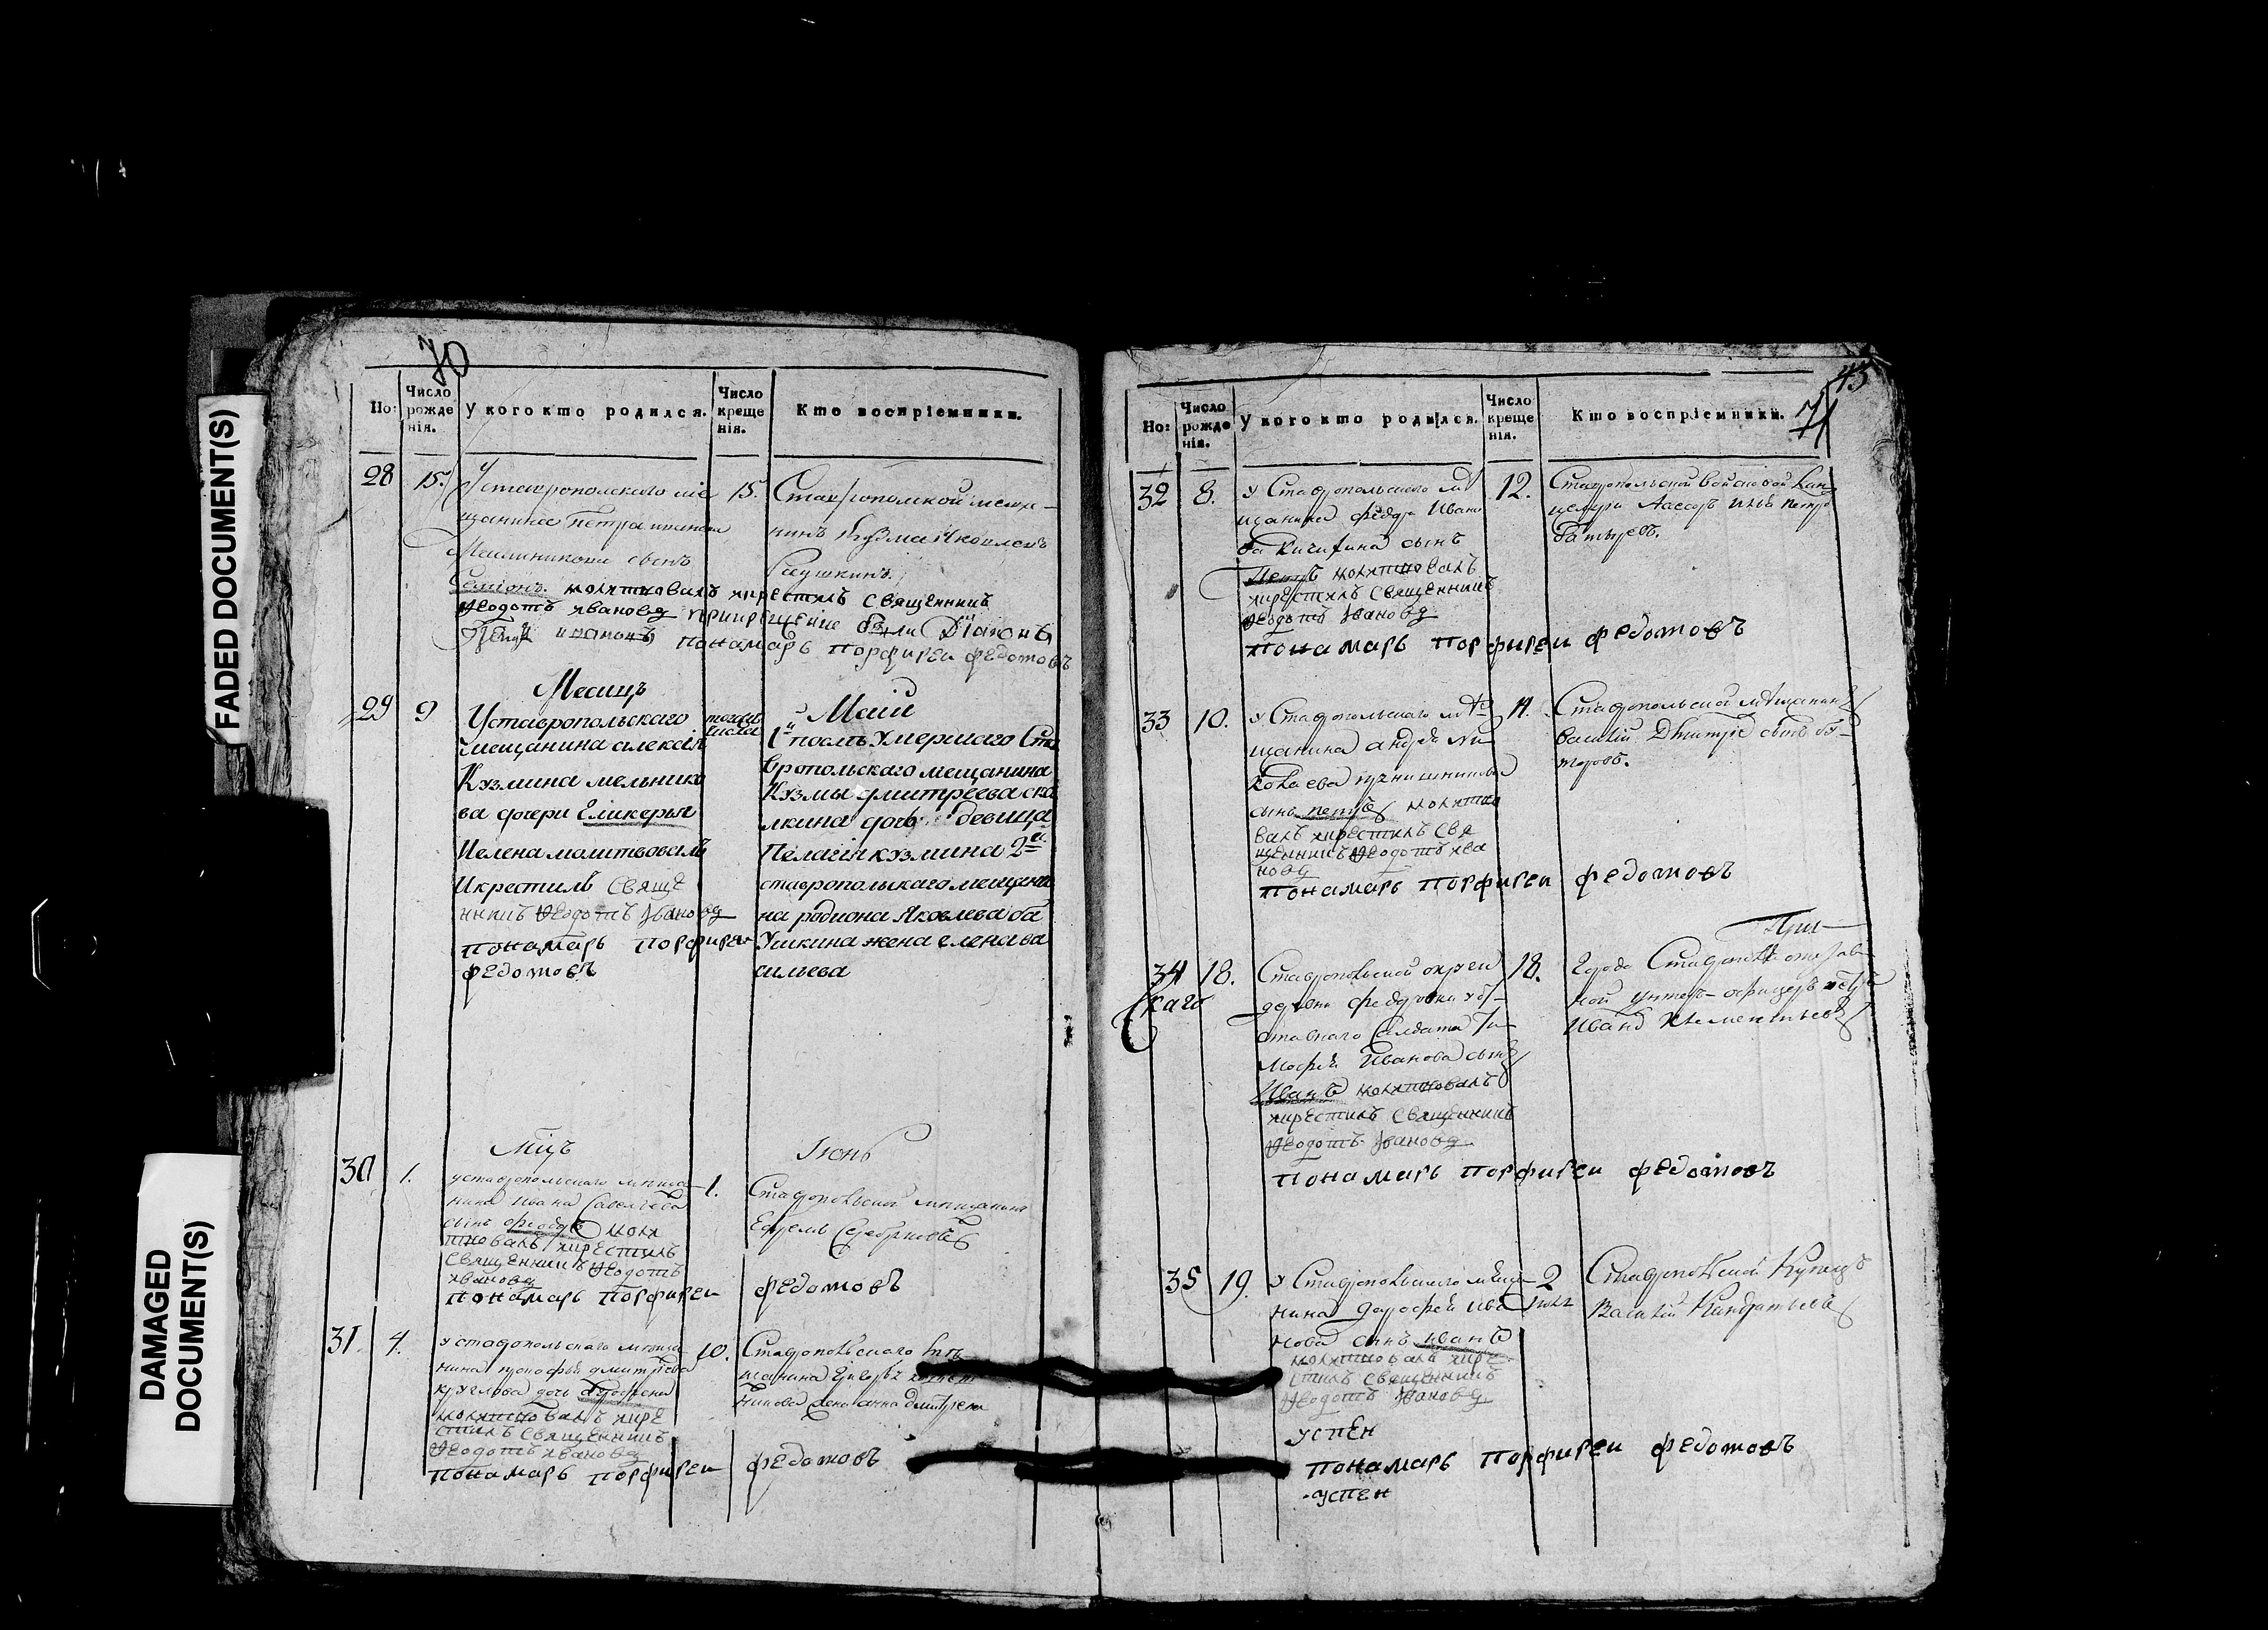 FADED DOCUMENT(S)
DAMAGED
DOCUMENT(S)
70
Но:
Число
рожде
нія.
У кого кто родился.
Число
креще
нія.
Кто воспріемники.
28 15.
Уставропольского ме
щанина Петра
Мелникова сынъ
Семіонъ молитвовалъ икрестилъ священникъ
Ѳеодотъ Ивановъ прикрещеніе были Діаконъ
пономарь порфиреи федотовъ
15.
Ставропольской меща
нинъ Кузма Яковлевъ
Месяцъ
Маій
29 9
Уставропольскаго
мещанина алексія
Кузмина мельнико
ва дочери Гликерья
Иелена молитвовалъ
Икрестилъ Свяще
нникъ Ѳеодотъ Ивановъ
пономарь порфиреи
федотовъ
тогожъ
числа
послѣ Умершаго Ста
вропольскаго мещанина
Кузмы дмитреева ска
лкина дочь девица
Пелагія кузмина 2я
ставропольскаго мещани
на родиона Яковлева ба
ушкина жена елена ва
сильева
Мцъ
Іюнь
30 1.
уставропольского мѣща
нина Ивана Савельева
сынъ феодоръ моли
твовалъ икрестилъ
Священникъ Ѳеодотъ
Ивановъ
пономарь порфиреи федотовъ
1.
Ставропольской мѣщанинъ
Ефремъ Серебряковъ
31. 4.
уставропольского мѣща
нина прокофья дмитреева
круглова дочь
молитвовалъ икре
стилъ Священникъ
Ѳеодотъ Ивановъ
пономарь порфиреи федотовъ
10.
Ставропольского мѣ
щанина
жена анна дмитрева
43
71
Но:
Число
рожде
нія.
У кого кто родился.
Число
креще
нія.
Кто воспріемники.
32 8.
у Ставропольского мѣ
щанина федора Ивано
ва Кичигина сынъ
Петръ молитвовалъ
икрестилъ Священникъ
Ѳеодотъ Ивановъ
пономарь порфиреи федотовъ
12.
Ставропольской войсковой Кан
целяри
Батыревъ.
33 10.
у Ставропольского мѣ
щанина андрея Ни
колаева
сынъ петръ молитво
валъ икрестилъ Свя
щенникъ Ѳеодотъ Ива
новъ
пономарь порфиреи федотовъ
Ставропольской мѣщанинъ
Василій Дмитріе сынъ
34 18.
Ставропольской округи
деревни федоровки уот
ставного Салдата Ти
мофея Иванова сынъ
Иванъ молитвовалъ
икрестилъ Священникъ
Ѳеодотъ Ивановъ
пономарь порфиреи федотовъ
18.
Города Ставрополя отстав
ной унтеръ-офицеръ
Иванъ Клементьевъ
35 19.
у Ставропольского меща
нина дорофея Ива
нова сынъ иванъ
молитвовалъ икре
стилъ Священникъ
Ѳеодотъ Ивановъ
успен
пономарь порфиреи федотовъ
успен
2
Ставропольской Купецъ
Василій Кандратьевъ